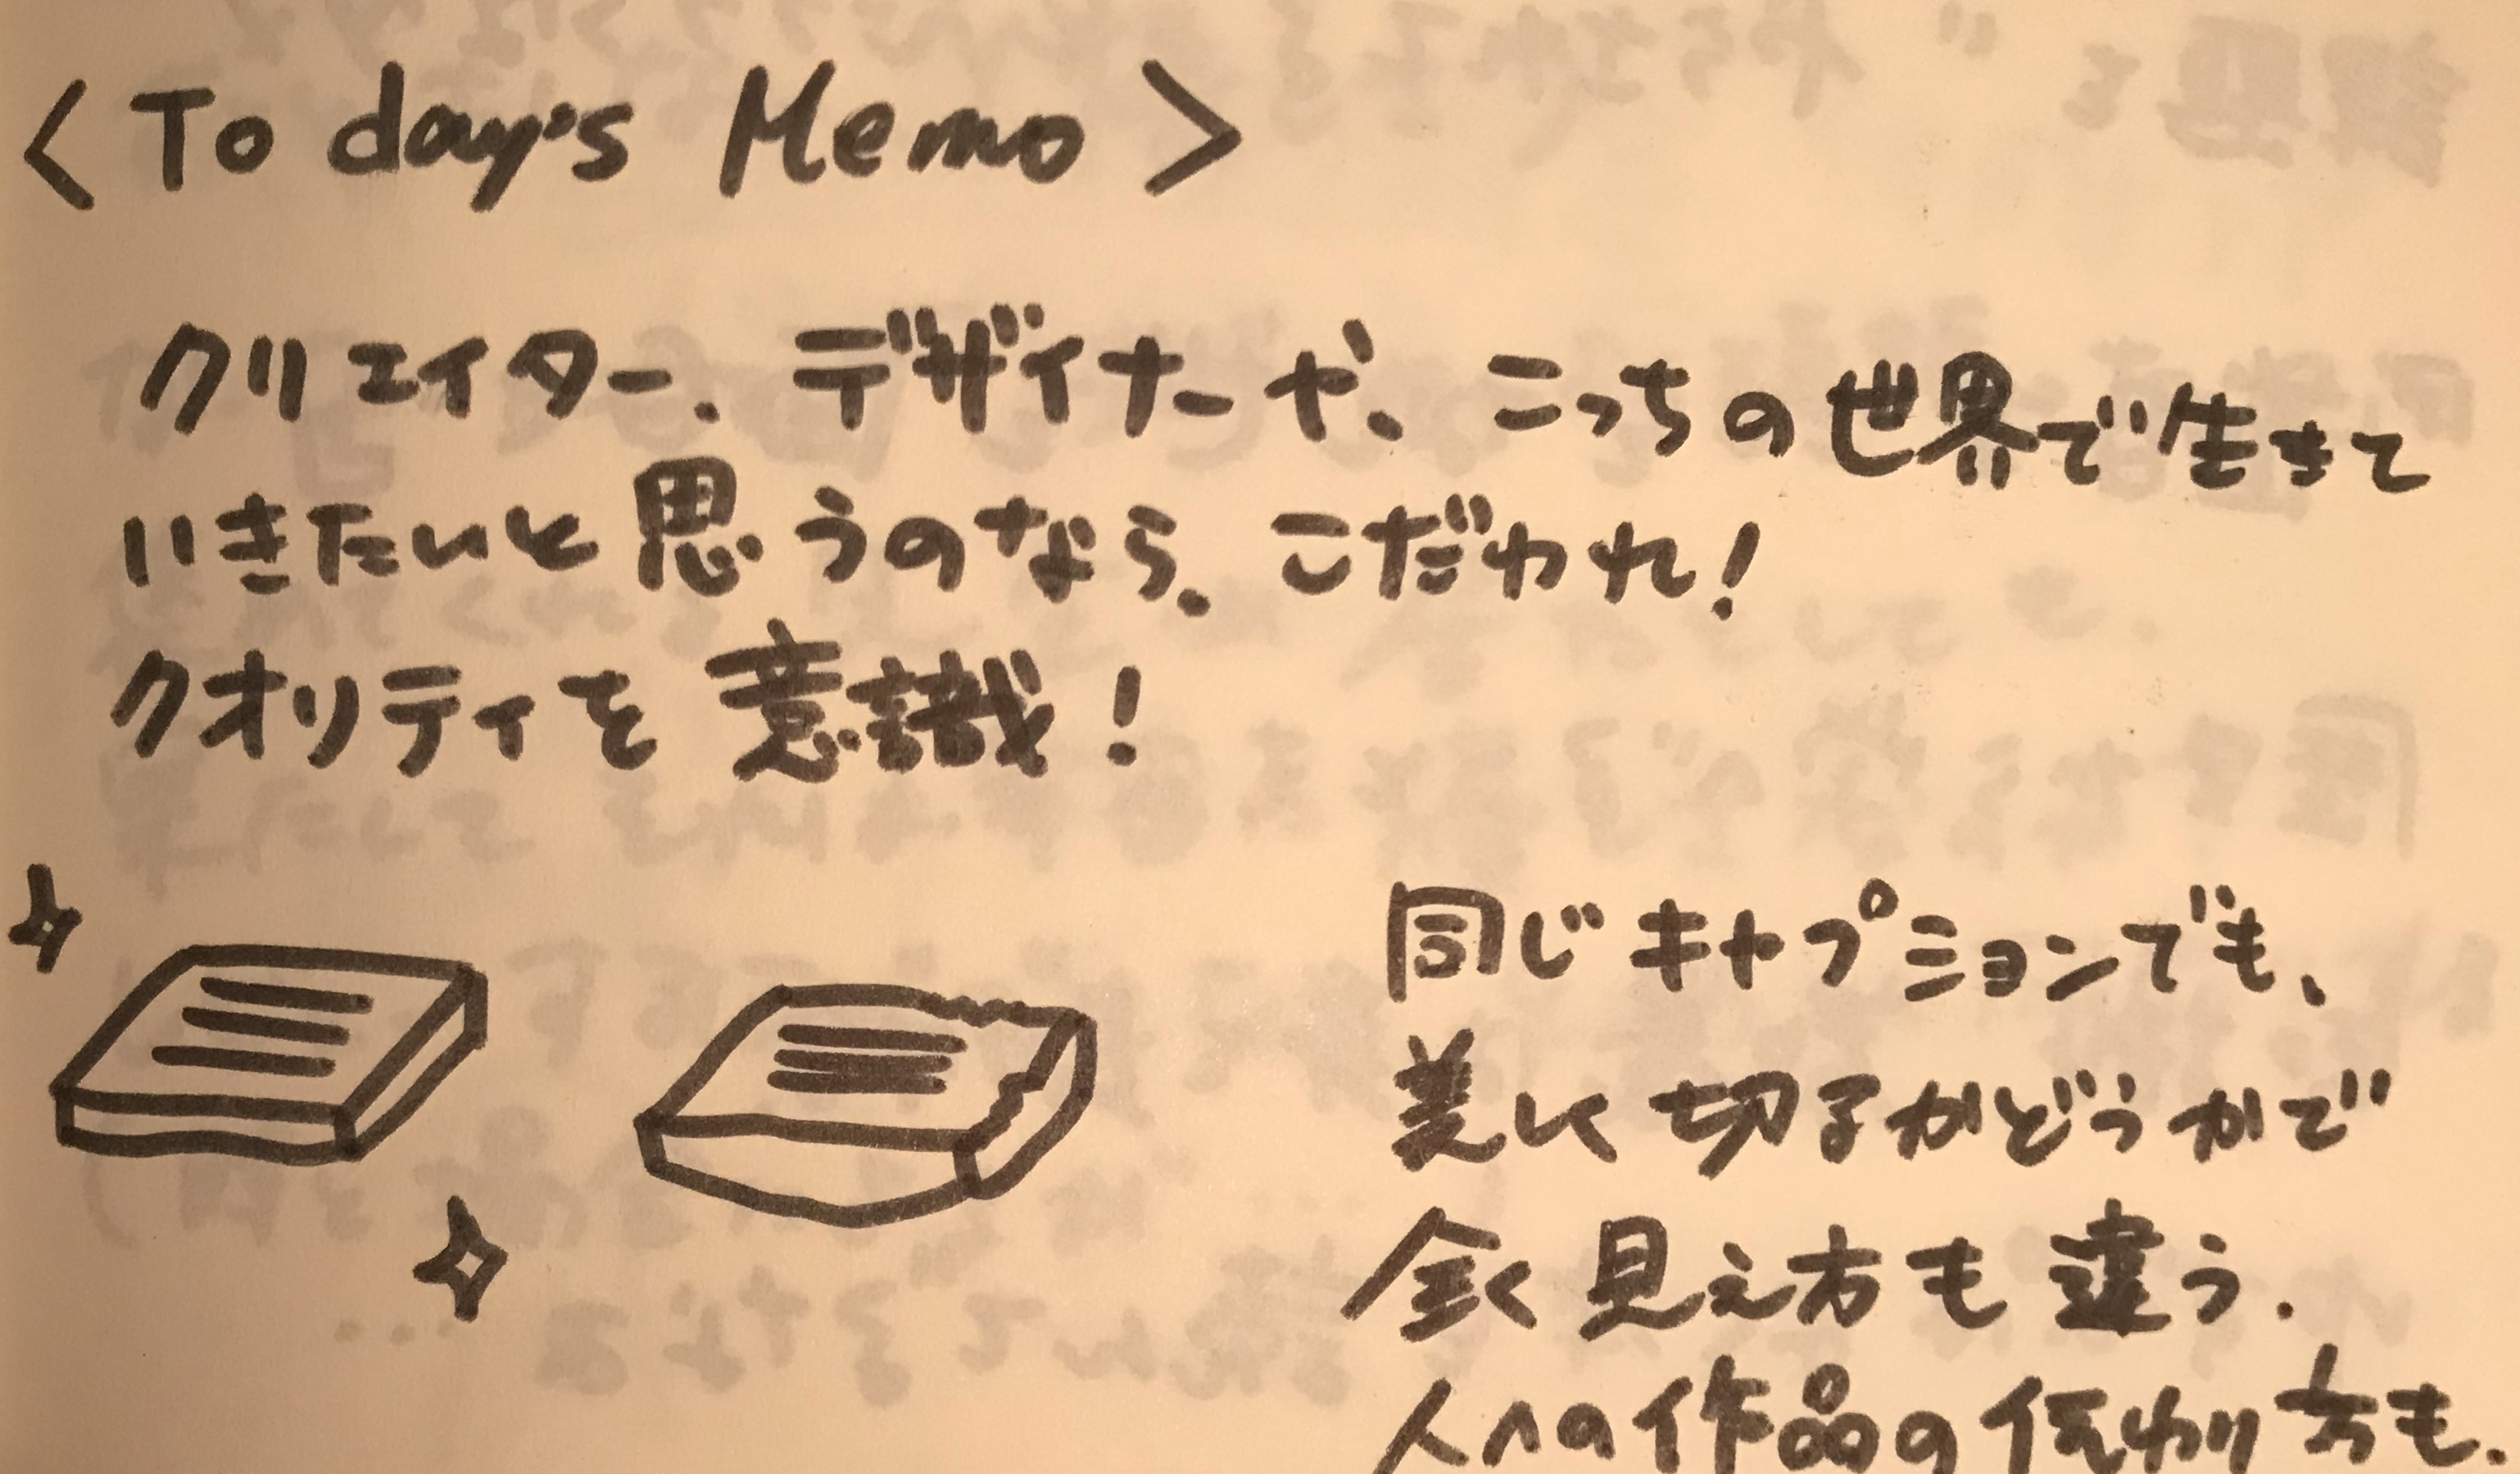 <Today's Memo>
クリエイター、デザイナーや、こっちの世界で生きて
いきたいと思うのなら、こだわれ!
クオリティを意識!
同じキャプションでも、
美しく切るかどうかで
全く見え方も違う.
人への作品の伝わり方も.